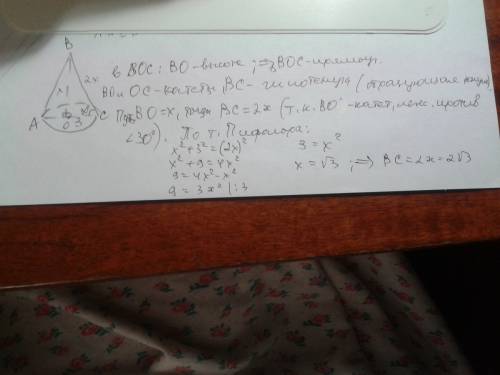 B
2x
x
A
O
3
C
в ΔBOC: BO-высота ;⇒ ΔBOC-прямоуг.
BO и OC-катеты, BC- гипотенуза (образующая конуса).
Пусть BO=x, тогда BC=2x (т.к. BO -катет, леж. против
∠30°). По т. Пифагора:
x²+3²=(2x)²
x²+9=4x²
9=4x²-x²
9=3x² |:3
3=x²
x=√3 ;⇒ BC=2x=2√3